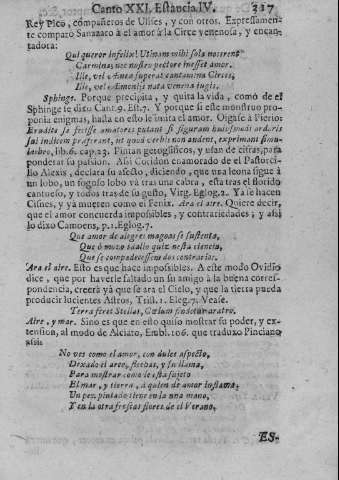 Canto XXI. Estancia IV. 317
Rey Pico, compañeros de Ulises, y con otros. Expresamen-
te comparò Sanazaro à el amor à la Circe venenosa, y encan-
tadora:
Qui queror infelix! Utinam mihi sola nocerent
Carmina; nec nostro pectore inesset amor.
Ille, vel Æaea superat cantamina Circes,
Ille, vel Æmoniis nata venena iugis.
Sphinge. Porque precipita, y quita la vida, como de el
Sphinge se dixo Cant. 9. Est. 7. Y porque si este monstruo pro-
ponia enigmas, hasta en esto le imita el amor. Oigase à Pierio:
Erudita se fecisse amatores putant si figuram huiusmodi ardoris
sui indicem præferant, ut quod verbis non audent, exprimant simu-
lachro, lib. 6. cap. 23. Pintan geroglificos, y usan de cifras, para
ponderar su passion. Assi Coridon enamorado de el Pastorci-
llo Alexis, declara su afecto, diciendo, que una leona sigue à
un lobo, un fogoso lobo và tras una cabra, esta tras el florido
cantueso, y todos tras de su gusto, Virg. Eglog. 2. Ya se hacen
Cisnes, y yà mueren como el Fenix. Ara el aire. Quiere decir,
que el amor concuerda impossibles, y contrariedades, y assi
lo dixo Camoens, p. 1. Eglog. 7.
Que amor de alegres magoas se sustenta,
Que ò mozo idalio quiz nesta ciencia,
Que se compadecessem dos contrarios.
Ara el aire. Esto es que hace impossibles. A este modo Ovidio
dice, que por haverle faltado un su amigo à la buena corres-
pondencia, creerà yà que se ara el Cielo, y que la tierra pueda
producir lucientes Astros, Trist. 1. Eleg. 7. Vease.
Terra feret Stellas, Cœlum findetur aratro.
Aire, y mar. Sino es que en esto quiso mostrar su poder, y ex-
tension, al modo de Alciato, Embl. 106. que traduxo Pinciano
assi:
No ves como el amor, con dulce aspecto,
Dexado el arco, flechas, y su llama,
Para mostrar como le està sujeto
El mar, y tierra, à quien de amor inflama,
Un pez pintado tiene en la una mano,
Y en la otra frescas flores de el Verano.
ES-